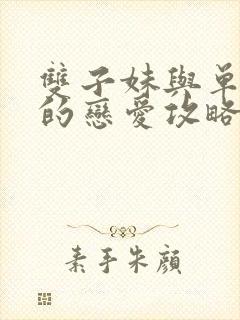 雙子妹與單
的戀愛攻略
素手朱顏